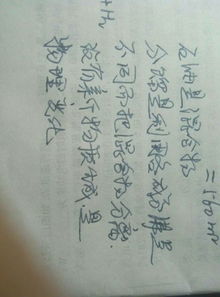 石油是混合物
分馏是利用各成分沸点
不同而把混合物分离.
没有物质生成是
物理变化
+ H₂